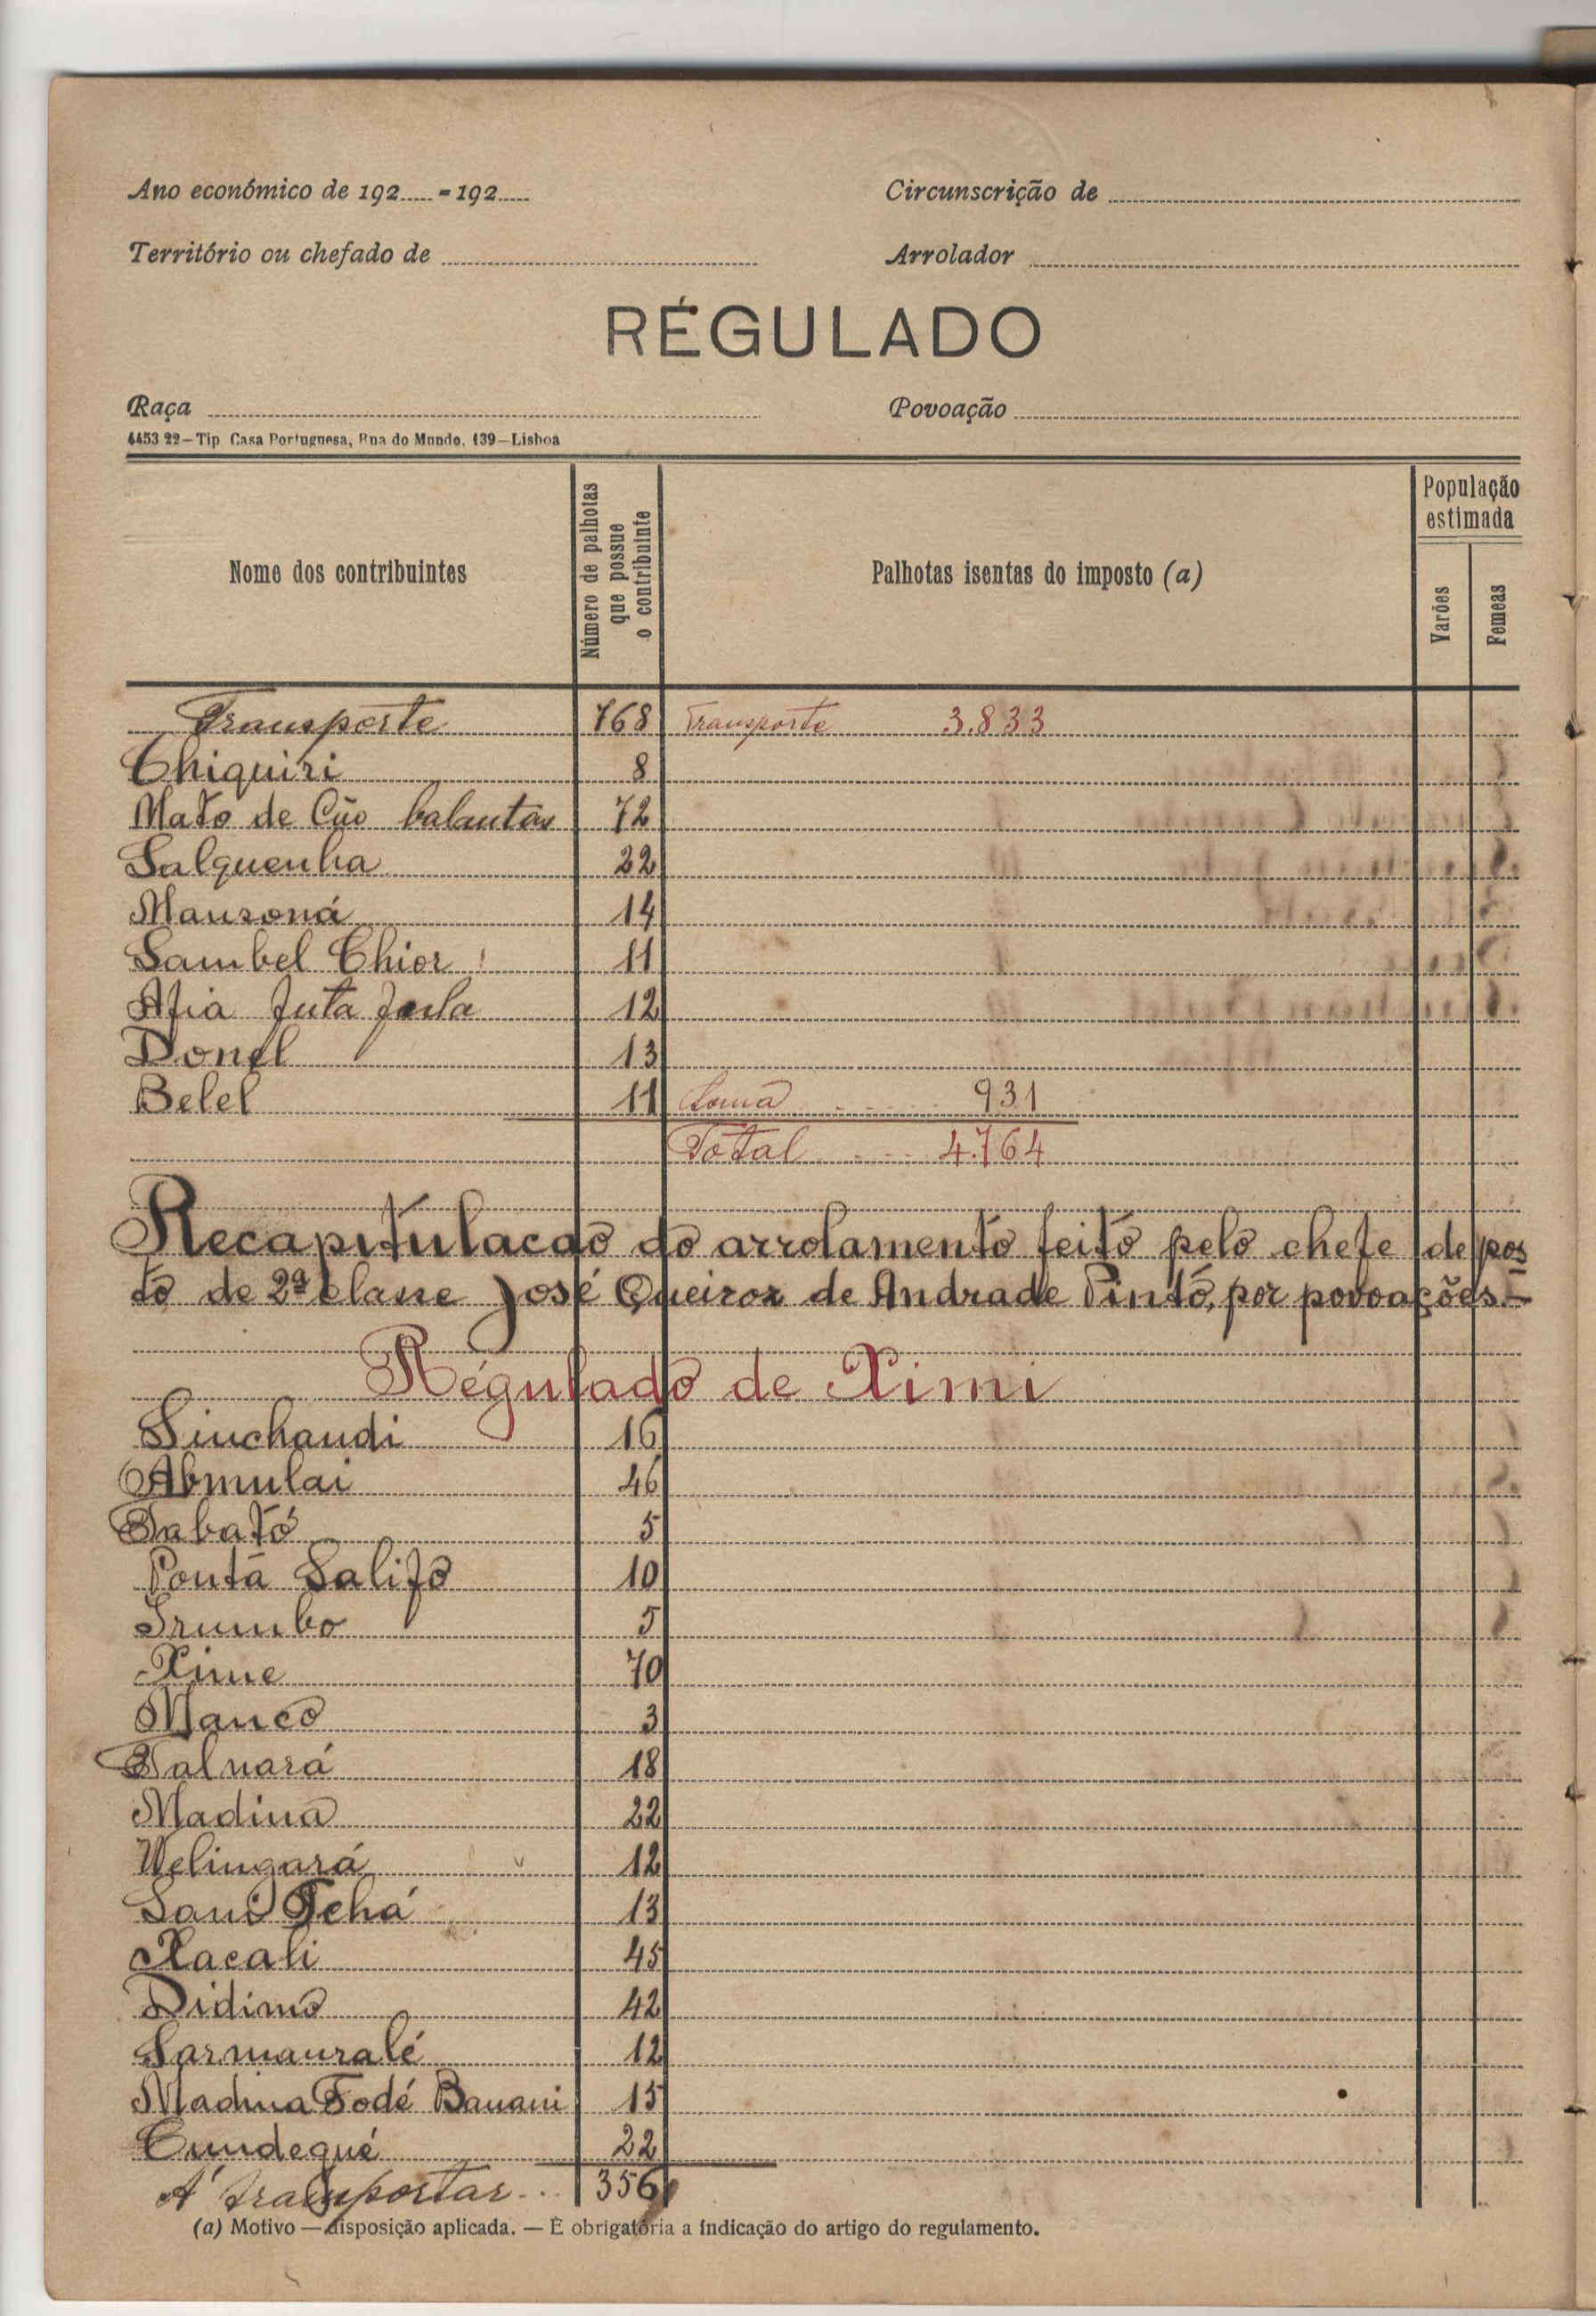 Ano económico de 192..... - 192.....
Circunscrição de
Território ou chefado de
Arrolador
RÉGULADO
Raça
Povoação
4453 22—Tip Casa Portuguesa, Rua do Mundo, 139—Lisboa
Nome dos contribuintes
Número de palhotas que possue o contribuinte
Palhotas isentas do imposto (a)
População estimada
Varões
Femeas
Transporte 768 Transporte 3.833
Chiquiri 8
Mato de Cão balantas 72
Salquenha 22
Mansoná 14
Sambel Chior 11
Afia Futa Foula 12
Donel 13
Belel 11 Soma 931
Total 4.764
Recapitulacao do arrolamento feito pelo chefe de pos
to de 2ª classe José Queiroz de Andrade Pinto, por povoações.—
Régulado de Ximi
Sinchandi 16
Abmulai 46
Tabató 5
Ponta Salifo 10
Trumbo 5
Xime 70
Manco 3
Talnará 18
Madina 22
Welingará 12
Sano Tchá 13
Xacali 45
Didimo 42
Sarmauralé 12
Madina Fodé Banani 15
Cundegué 22
A transportar... 356
(a) Motivo — disposição aplicada. — É obrigatória a indicação do artigo do regulamento.